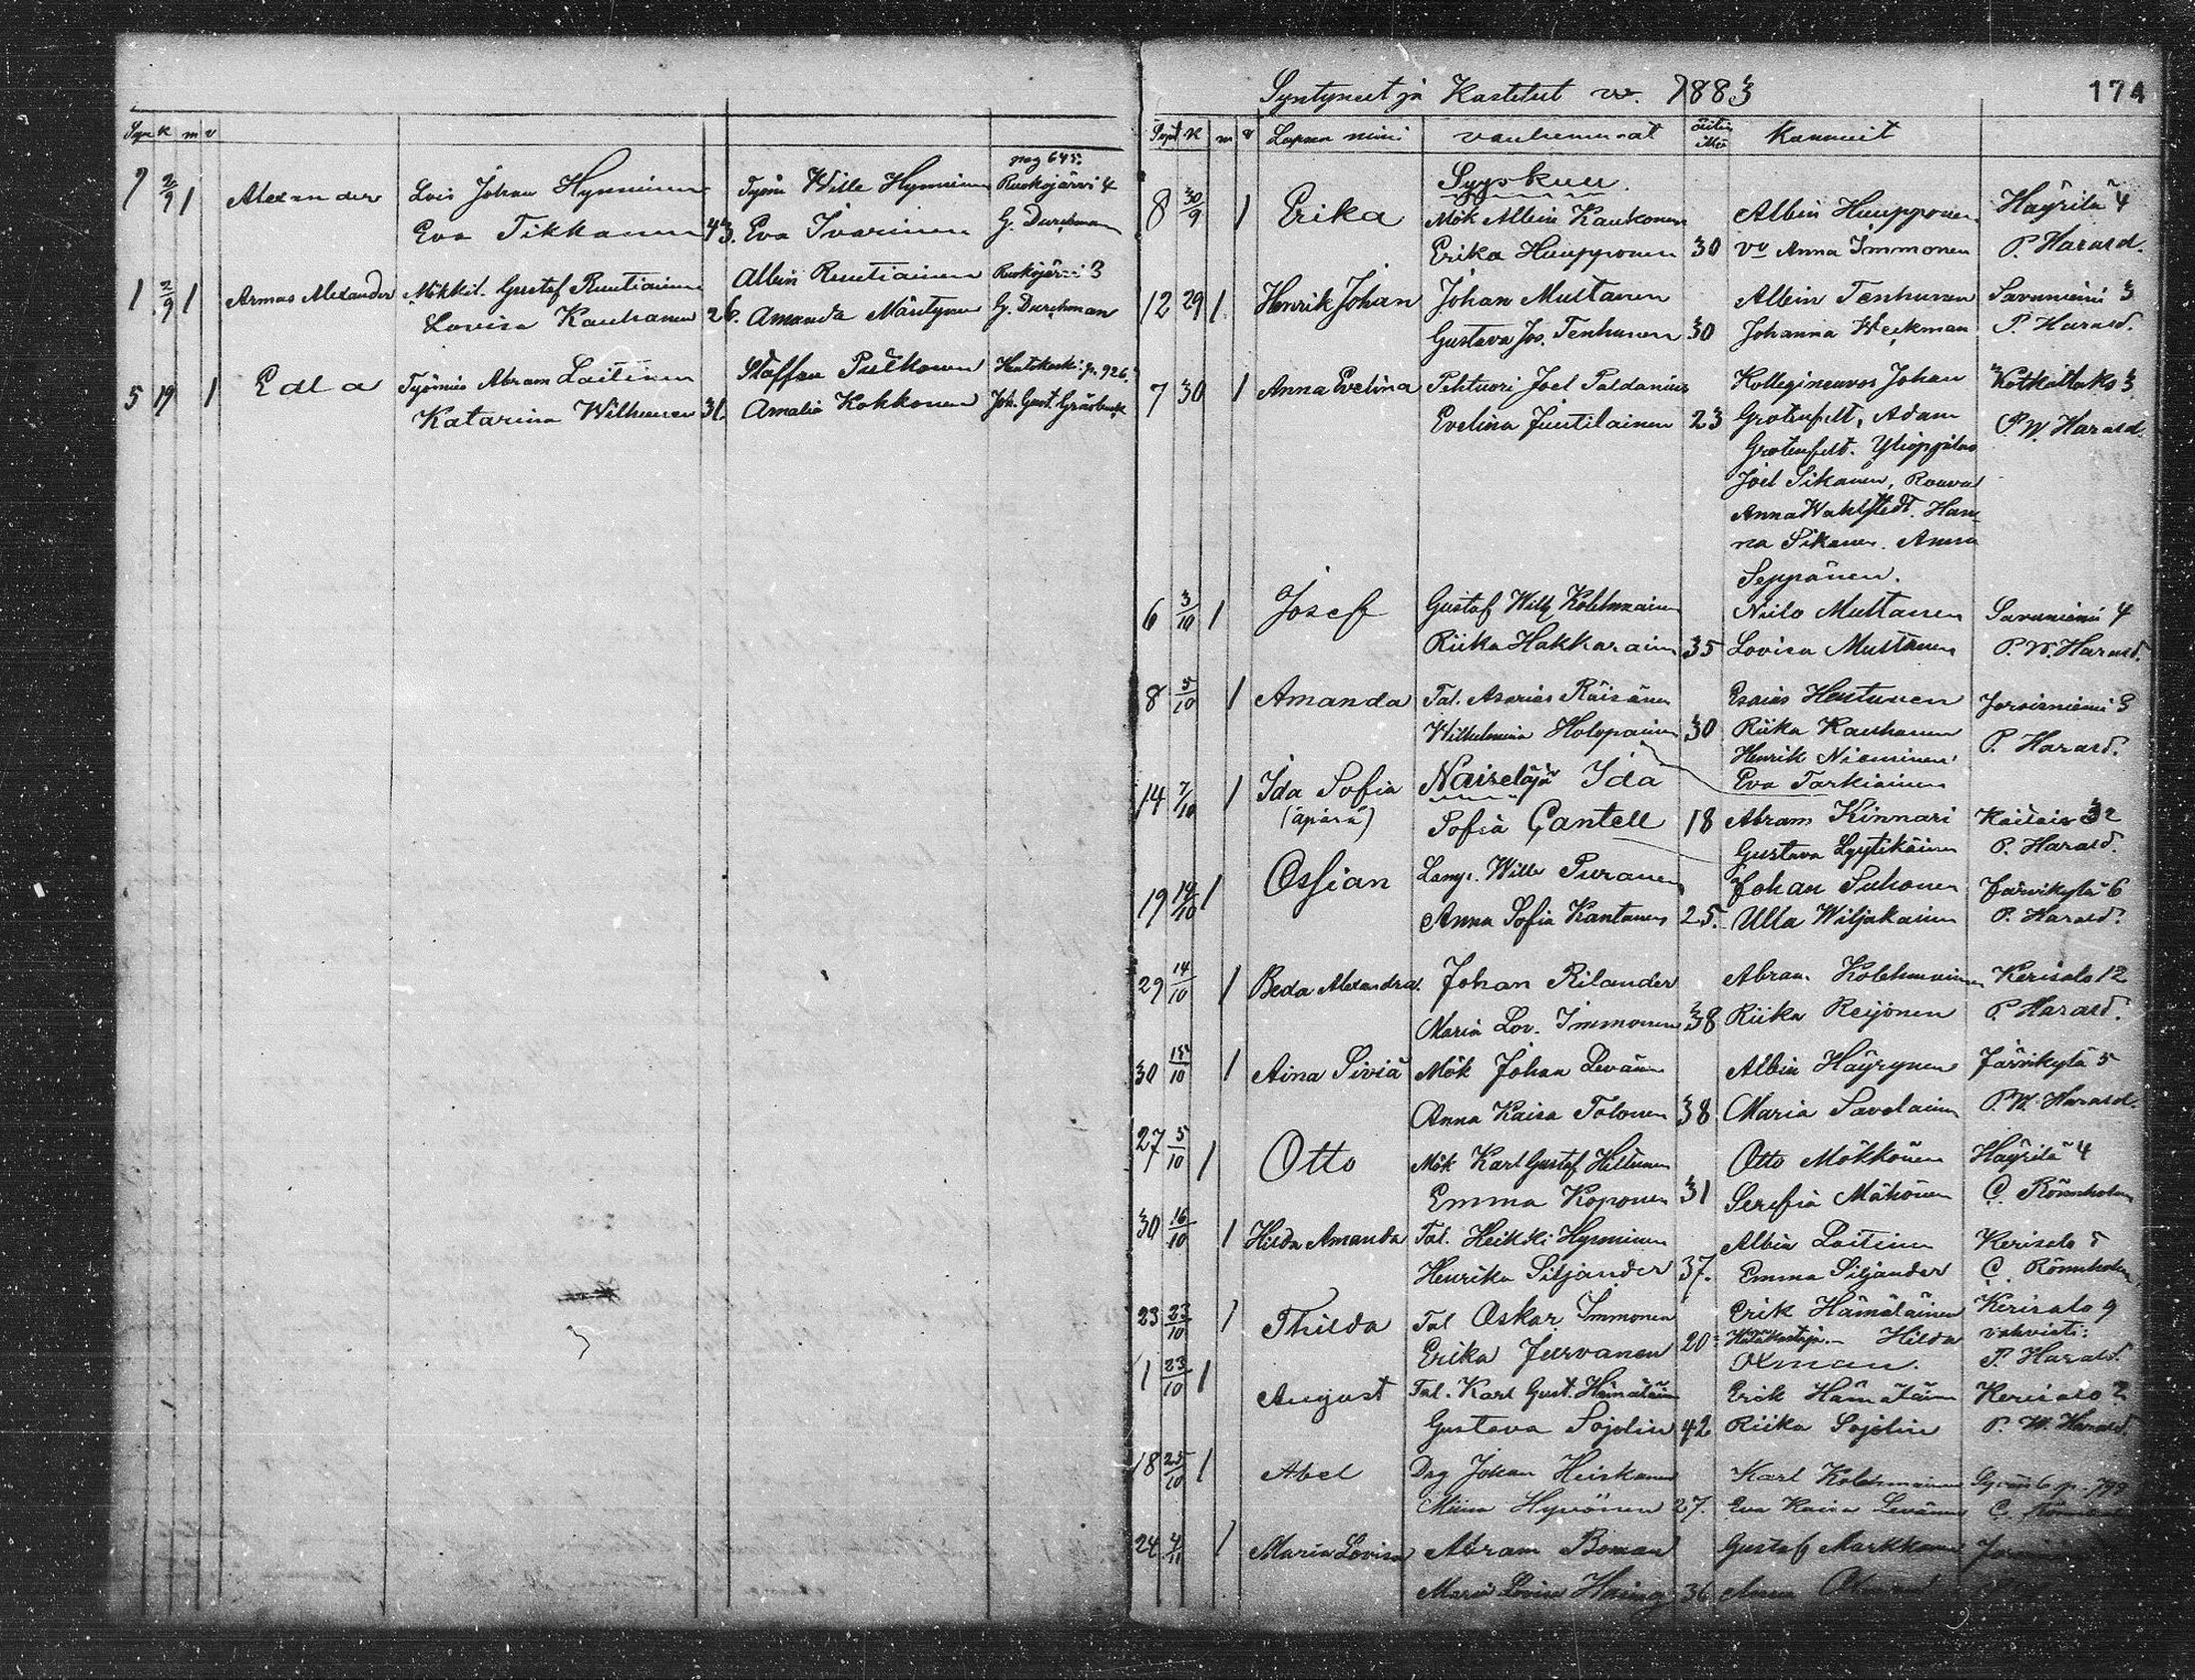 Syn K m v
pag 645.
7 2/9 1 Alexander Lois Johan Hynninen Työm Wille Hynninen Ruokojärvi 4
Eva Tikkanen 43. Eva Ivarinen G. Durchman
1 2/9 1 Armas Alexander Mökkil. Gustaf Ruutiainen Albin Ruutiainen Ruokojärvi 3
Lovisa Kauhanen 26. Amanda Mäntynen G. Durchman
5 19 1 Edla Työmies Abram Laitinen Staffan Pulkonen
Katarina Wilhunen 31. Amalia Kokkonen Joh. Gust.
Syntyneet ja Kastetut vv. 1883 174
Synt K m v Lapsen nimi vanhemmat äitin ikä Kummit
Syyskuu.
8 30/9 1 Erika Mök Albin Kaukonen Albin Huupponen Häyrilä 4
Erika Huupponen 30 vo Anna Immonen P. Harald.
12 29 1 Henrik Johan Johan Multanen Albin Tenhunen Savuniemi 3
Gustava Jos. Tenhunen 30 Johanna Weckman P. Harald.
7 30 1 Anna Evelina Pehtuori Joel Paldanius Kollegineuvos Johan Kotkatlaks 3
Evelina Juutilainen 23 Grotenfelt, Adam P. W. Harald
Grotenfelt. Ylioppilas
Joel Sikanen, Rouva
Anna Wahlstedt. Han-
na Sikanen. Anna
Seppänen.
6 3/10 1 Josef Gustaf Wilh Kolehmainen Niilo Multanen Savuniemi 4
Riika Hakkarainen 35 Lovisa Multanen P. W. Harald.
8 5/10 1 Amanda Tal. Asarias Räisänen Esaias Hentunen Joroisniemi 3
Wilhelmina Holopainen 30 Riika Kauhanen P. Harald.
Henrik Nieminen
14 7/10 1 Ida Sofia Naiseläjä Ida Eva Tarkiainen
(äpärä) Sofia Gantell 18 Abram Kinnari Kaitais 32
Gustava Lyytikäinen P. Harald.
19 14/10 1 Ossian Lamp. Wille Puranen Johan Suhonen Järvikylä 6
Anna Sofia Kantanen 25. Ulla Wiljakainen P. Harald.
29 14/10 1 Beda Alexandra. Johan Rilander Abram Kolehmainen Kerisalo 12
Maria Lov. Immonen 38 Riika Reijonen P. Harald.
30 15/10 1 Aina Siviä Mök Johan Levänen Albin Häyrynen Järvikylä 5
Anna Kaisa Tolonen 38 Maria Savolainen P. W. Harald.
27 5/10 1 Otto Mök Karl Gustaf Hiltunen Otto Mökkönen Häyrilä 4
Emma Koponen 31 Serefia Mähönen C. Rönnholm
30 16/10 1 Hilda Amanda Tal. Heikki Hynninen Albin Laitinen Kerisalo
Henrika Siljander 37. Emma Siljander C. Rönnholm
23 23/10 1 Thilda Tal Oskar Immonen Erik Hämäläinen Kerisalo 9
Erika Jurvanen 20 = Hätäkastaja. – Hilda vahvisti:
Oxman. P. Harald.
1 23/10 1 August Tal. Karl Gust. Hämäläinen Erik Hämäläinen Kerisalo 2
Gustava Sojolin 42 Riika Sojolin P. W. Harald.
18 25/10 1 Abel Drg Johan Heiskanen Karl Kolehmainen
Miina Hyvönen 27. Eva Kaisa Levänen C.
24 4/11 1 Maria Lovisa Abram Boman Gustaf Markkanen
Maria Lovisa 36 Anna